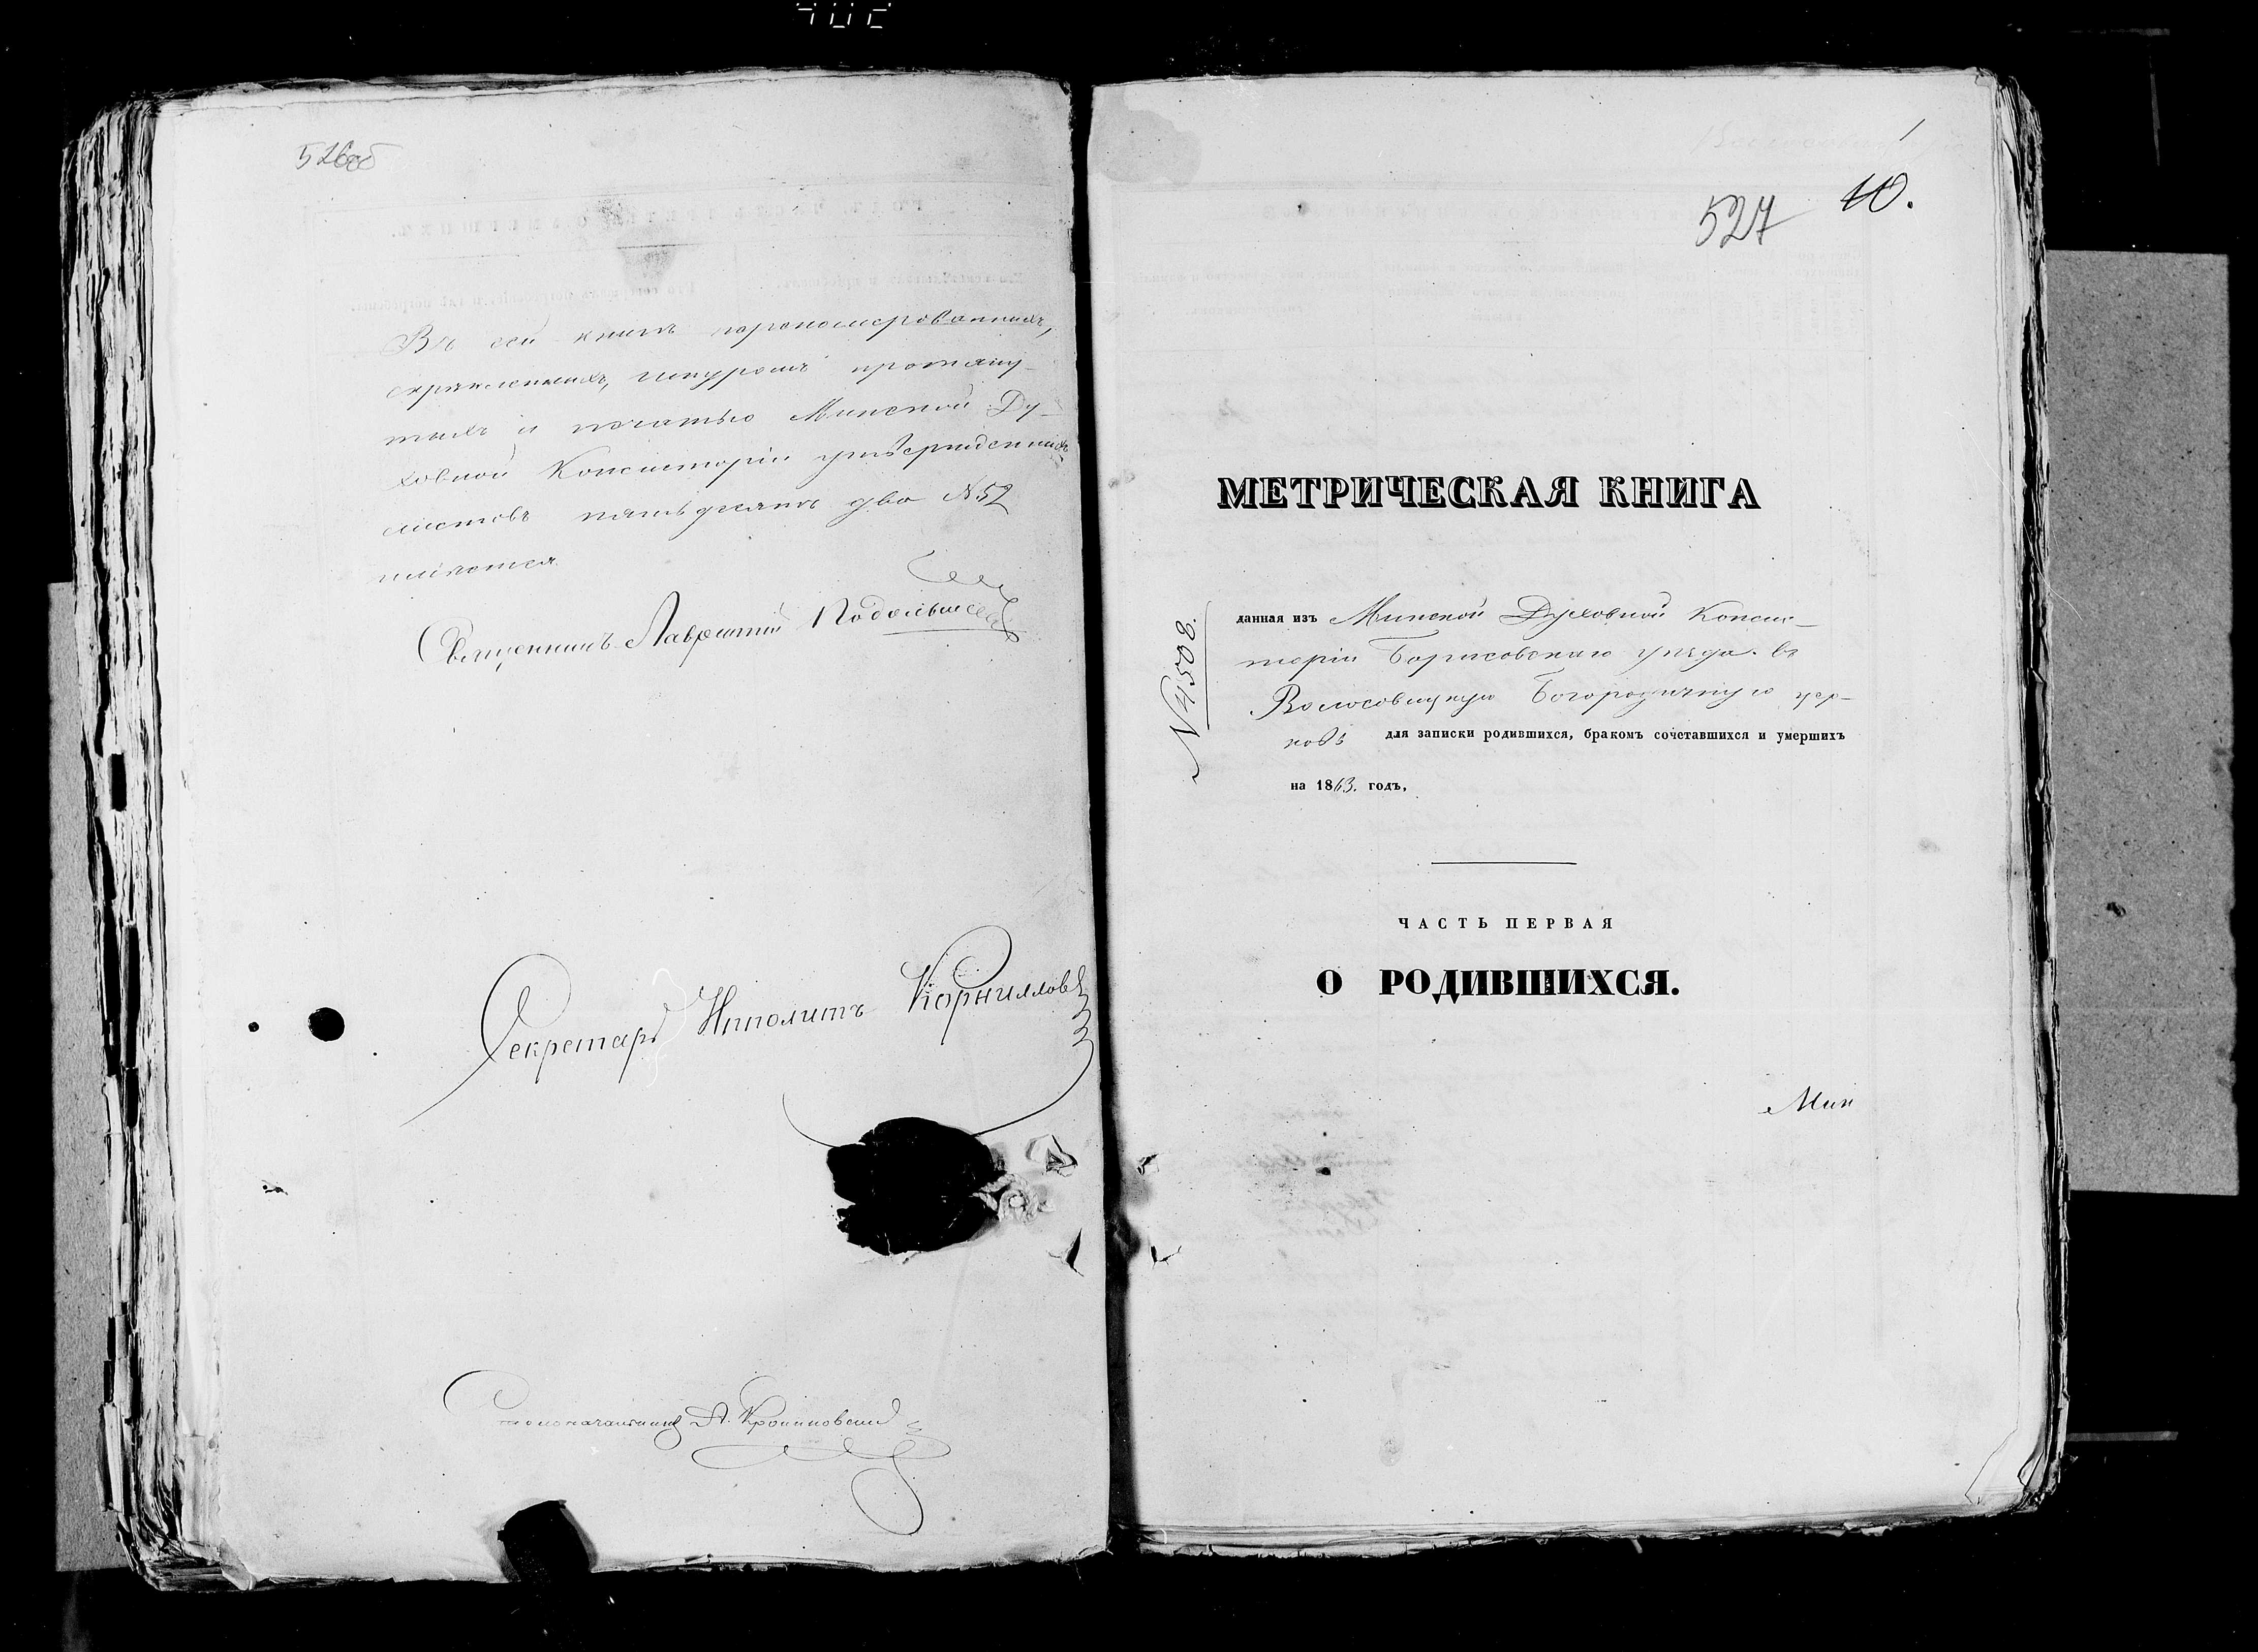 402
526об
Въ сей книгѣ перенумерованныхъ,
скрѣпленныхъ, шнуромъ протяну-
тыхъ и печатью Минской Ду-
ховной Консисторіи утвержденныхъ
листовъ пятьдесятъ два №52
числится
Священникъ Лаврентій Подольскій
Секретарь Ипполитъ Корниловъ
Столоначальникъ А.
1
527
10.
МЕТРИЧЕСКАЯ КНИГА
№4508.
данная изъ Минской Духовной Консис-
торіи Борисовскаго уѣзда въ
Волосовицкую Богородичную цер-
ковь для записки родившихся, бракомъ сочетавшихся и умершихъ
на 1863. годъ,
ЧАСТЬ ПЕРВАЯ
О РОДИВШИХСЯ.
Мин